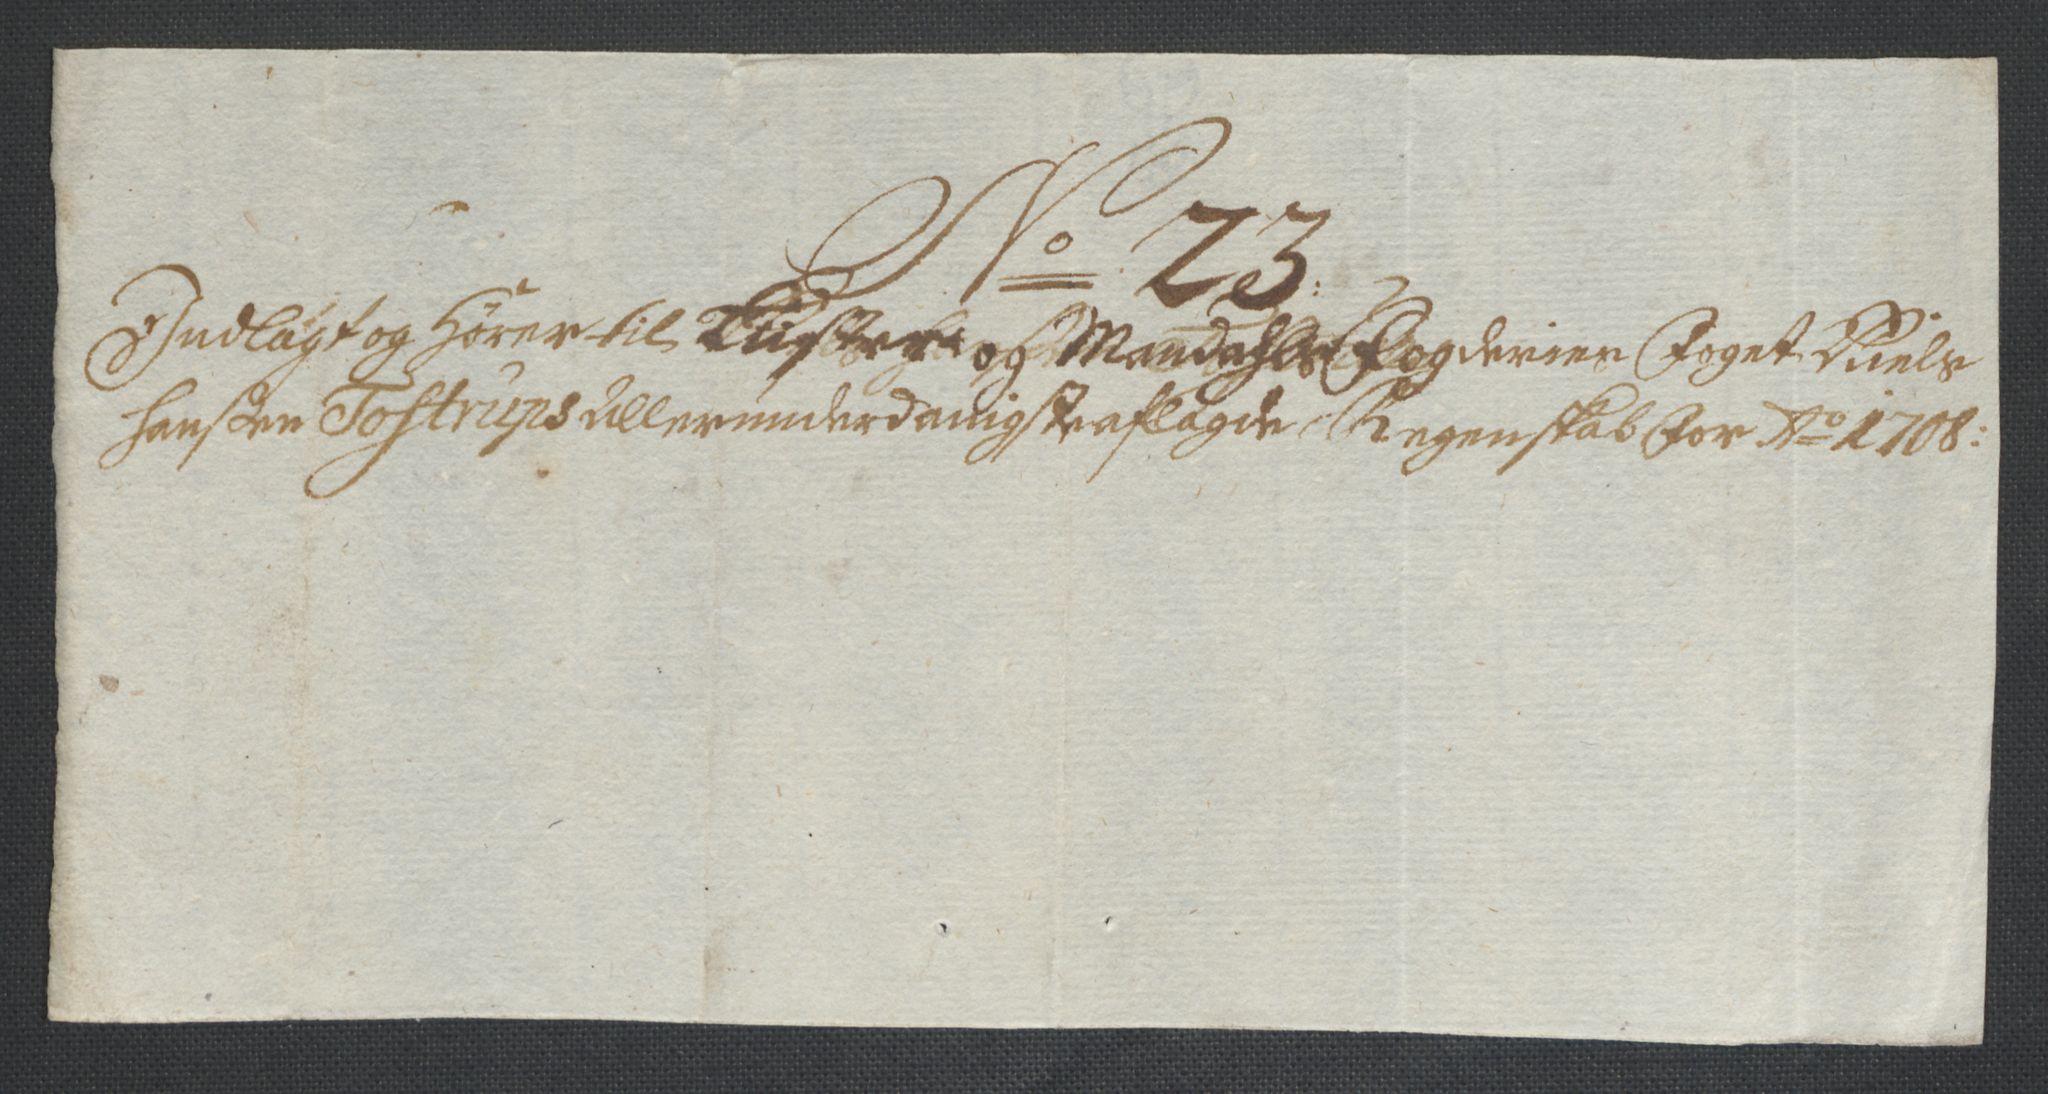 No 23:
Indlagt og hörer til Lister og Mandahls Fogderier Foget Niels
Hansten Tostrups Allerunderdanigste aflagde Regenskab for Ao 1708: